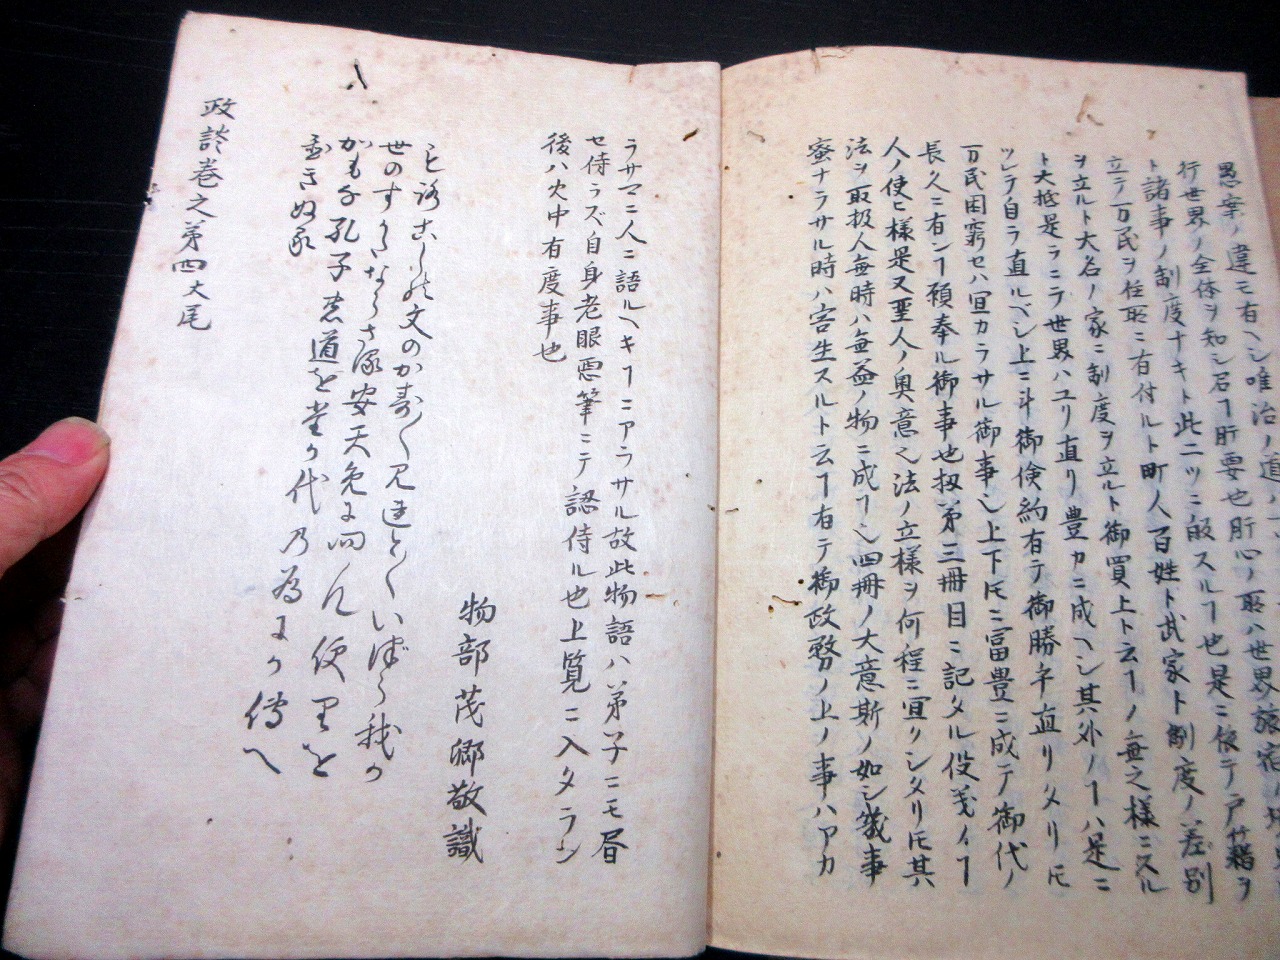 愚案ノ違モ有ヘシ唯治ノ道ハ
行世界ノ全体ヲ知シ石ヿ肝要也肝心ノ取ハ世界旅宿ノ
ト諸事ノ制度ナキト此二ツニ皈スルヿ也是ニ依テ戸籍ヲ
立テ万民ヲ住所ニ有付ルト町人百姓ト武家ト制度ノ差別
ヲ立ルト大名ノ家ニ制度ヲ立ルト御買上ト云ヿノ無之様ニスル
ト大抵是ラニテ世界ハユリ直リ豊カニ成ヘシ其外ノヿハ是ニ
ツレテ自ラ直ルベシ上ニ斗御倹約有テ御勝手直リタリ𪜈
万民困窮セハ宜カラサル御事也上下𪜈ニ冨豊ニ成テ御代ノ
長久ニ有ンヿ願奉ル御事也扨第三冊目ニ記タル役義イヿ
人ノ使ヒ様是又聖人ノ奥意也法ノ立様ヲ何程ニ宜クシタリ𪜈其
法ヲ取扱人無時ハ無益ノ物ニ成ヿ也四冊ノ大意斯ノ如シ幾事
蜜ナラサル時ハ害生スルト云ヿ有テ御政務ノ上ノ事ハアカ
ラサマニ人ニ語ルヘキヿニアラサル故此物語ハ弟子ニモ昼
セ侍ラズ自身老眼悪筆ニテ認侍ル也上覧ニ入タラン
後ハ火中有度事也
物部茂卿敬識
文のか寿〳〵見連と〳〵い我か
世のすかたならさ
かも孔子
道を代乃為よか傳へ
政談巻之第四大尾